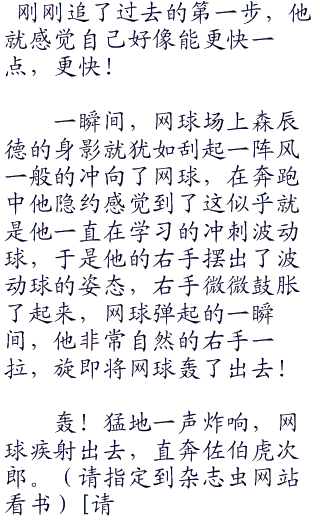 刚刚追了过去的第一步，他
就感觉自己好像能更快一
点，更快！
一瞬间，网球场上森辰
德的身影就犹如刮起一阵风
一般的冲向了网球，在奔跑
中他隐约感觉到了这似乎就
是他一直在学习的冲刺波动
球，于是他的右手摆出了波
动球的姿态，右手微微鼓胀
了起来，网球弹起的一瞬
间，他非常自然的右手一
拉，旋即将网球轰了出去！
轰！猛地一声炸响，网
球疾射出去，直奔佐伯虎次
郎。（请指定到杂志虫网站
看书）[请